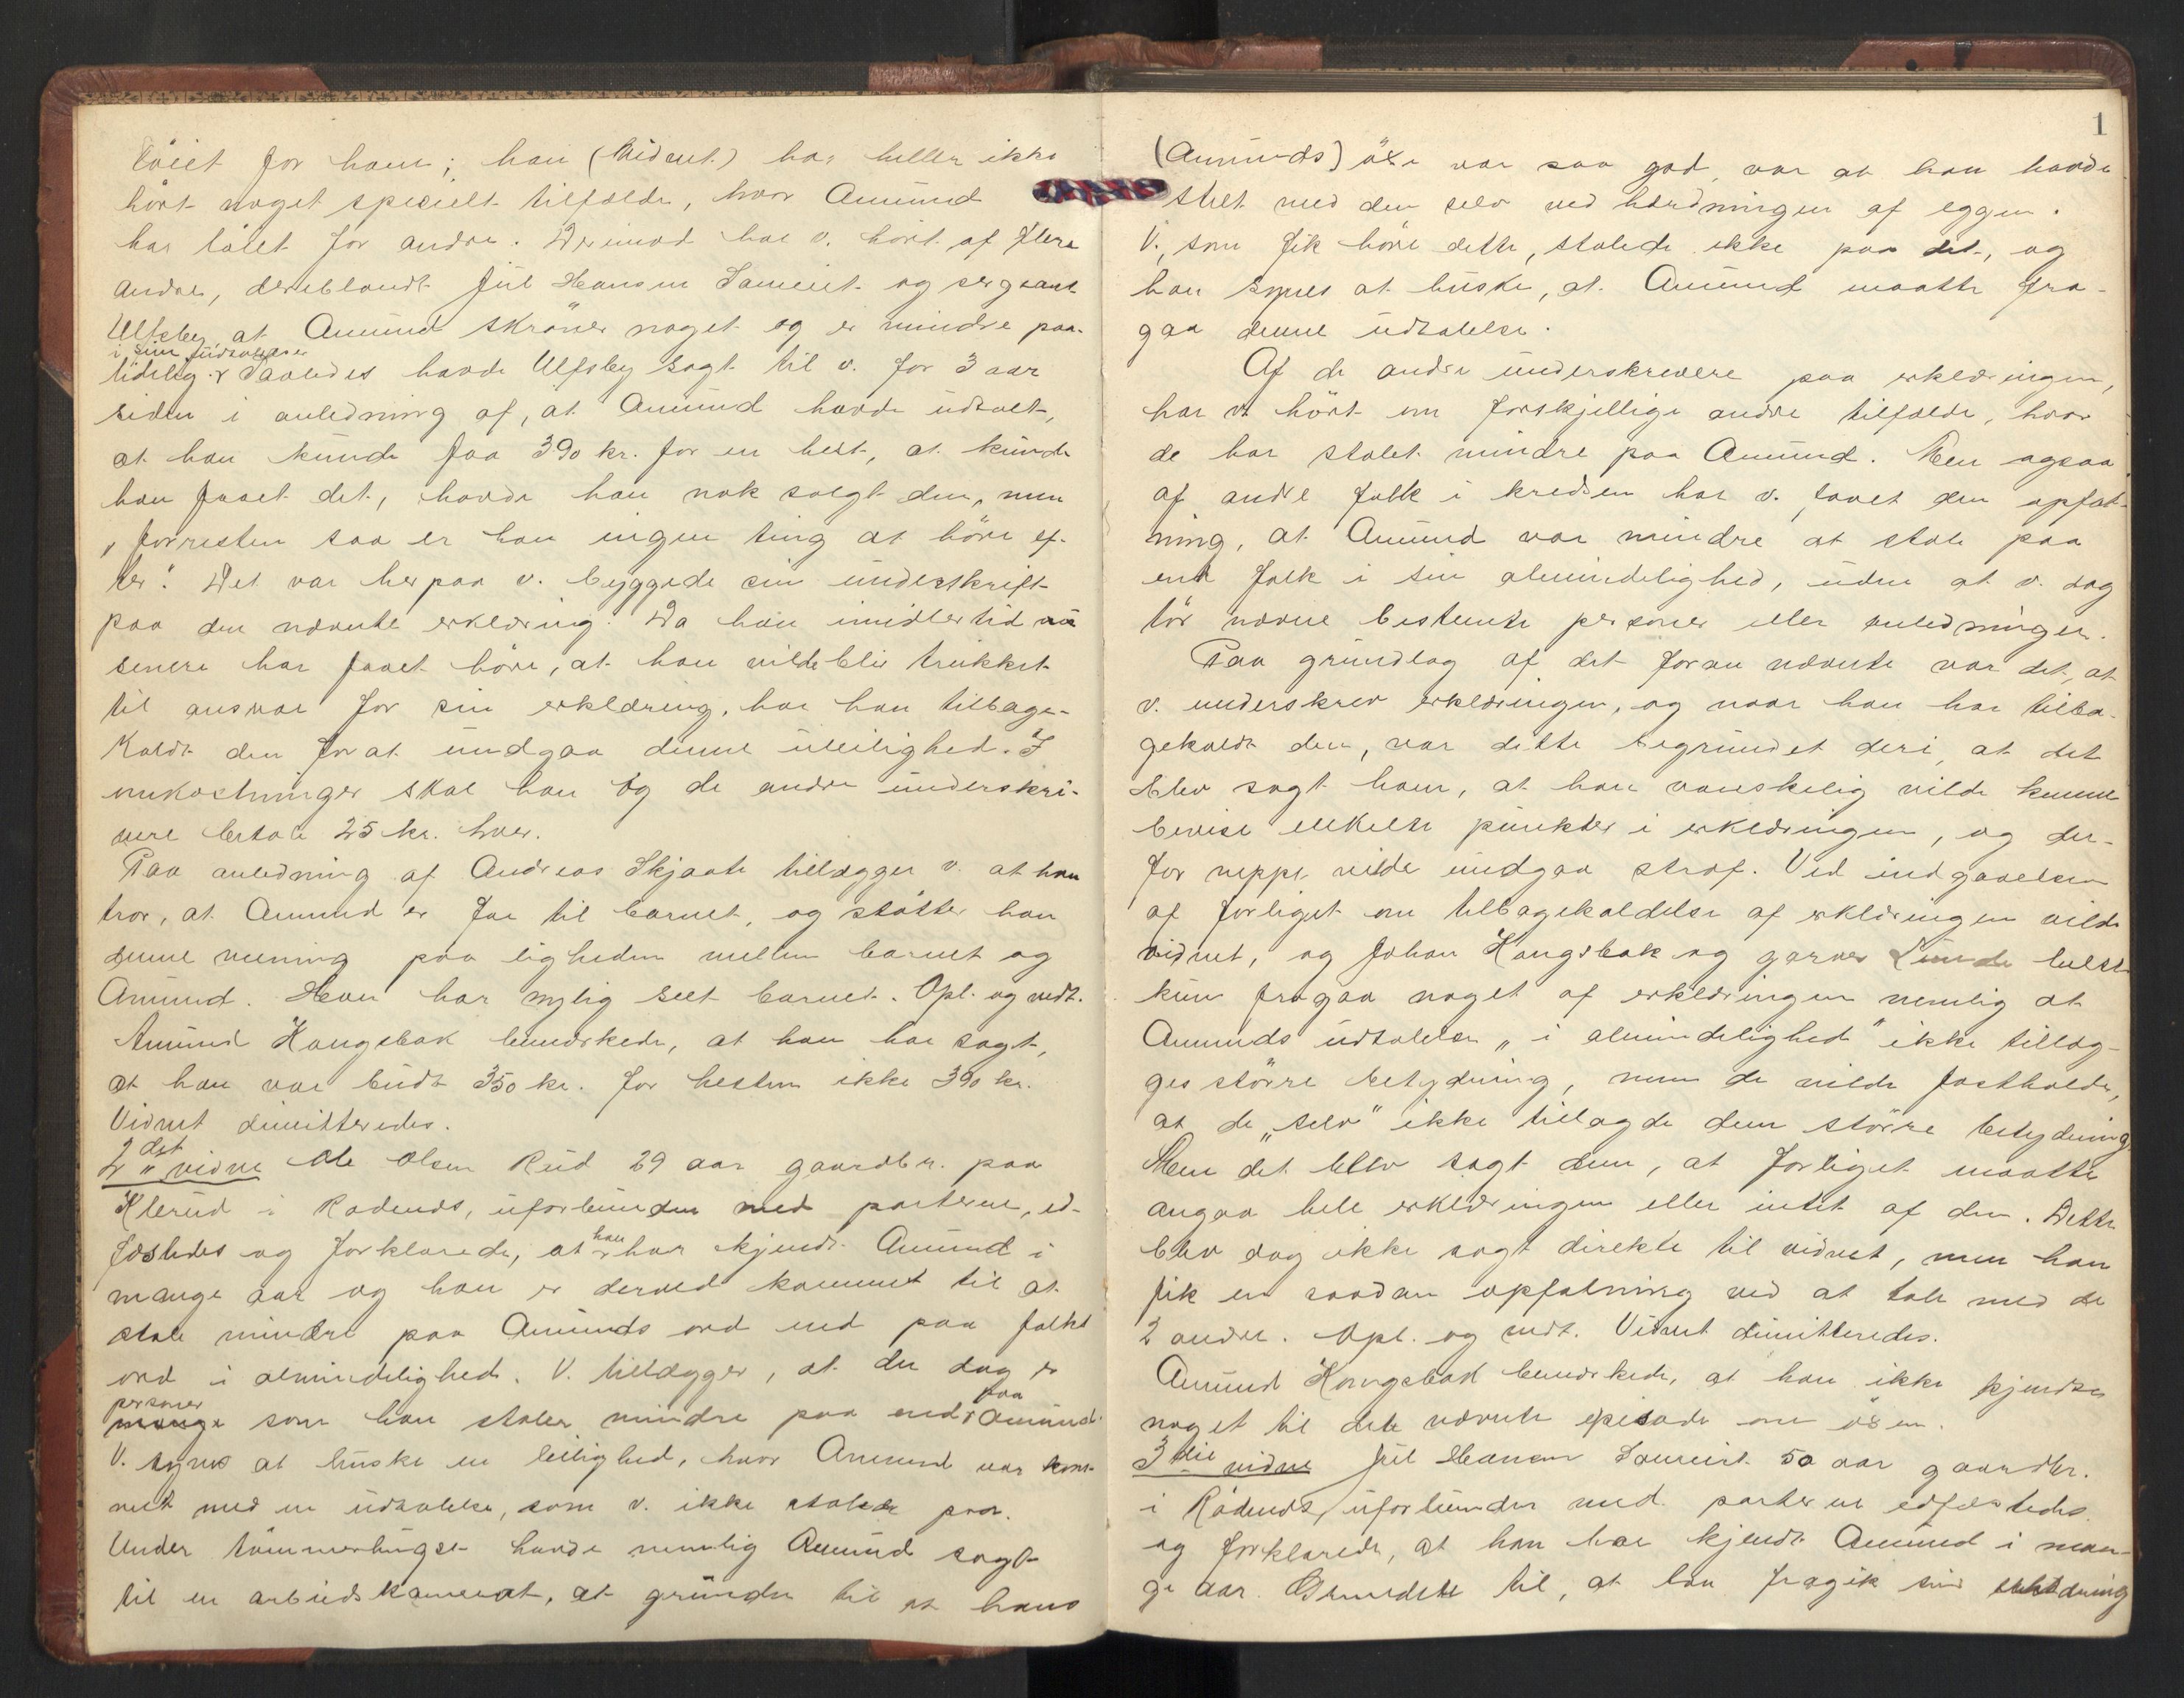 löiet for ham; han (Vidnet) har heller ikke
hört noget specielt tilfælde, hvor Amund
har löiet for andre. Derimod har v. hört af flere
andre, deriblandt Jul Hansen Sameiet og sergeant
Ulfsby, at Amund skröner noget og er mindre paa-
i sine udtalelser
lidelig. Saaledes havde Ulfsby sagt til v. for 3 aar
siden i anledning af, at Amund havde udtalt,
at han kunde faa 390 kr. for en hest, at kunde
han faaet det, havde han nok solgt den, men
„forresten saa er han ingen ting at höre ef-
ter." Det var herpaa v. byggede sin underskrift
paa den nævnte erklæring. Da han imidlertid nu
senere har faaet höre, at han vilde bli trukket
til ansvar for sin erklæring, har han tilbage-
kaldt den for at undgaa denne uleilighed. I
omkostninger skal han og de andre underskri-
vere betale 25 kr. hver.
Paa anledning af Andreas Skjaate tillægger v. at han
tror, at Amund er far til barnet, og stötter han
denne mening paa ligheden mellem barnet og
Amund. Han har nylig seet barnet. Opl. og vedt.
Amund Kongsbak bemærkede, at han har sagt,
at han var budt 350 kr. for hesten ikke 390 kr.
Vidnet dimitteredes.
2det vidne Ole Olsen Rud 29 aar gaardbr. paa
Klerud i Rødenes, uforbunden med parterne, ed-
fæstedes og forklarede, at han har kjendt Amund i
mange aar og han er derved kommet til at
stole mindre paa Amunds ord end paa folks
ord i almindelighed. V. tillægger, at der dog er
personer paa
mange som han stoler mindre paa end Amund.
V. synes at huske en leilighed, hvor Amund var kom-
met med en udtalelse, som v. ikke stolede paa.
Under tömmerhugst havde nemlig Amund sagt
til en arbeidskamerat, at grunden til at hans
1
(Amunds) öxe var saa god, var at han havde
stelt med den selv ved hærdningen af eggen.
V., som fik höre dette, stolede ikke paa det, og
han synes at huske, at Amund maatte fra-
gaa denne udtalelse.
Af de andre underskrivere paa erklæringen,
har v. hört om forskjellige andre tilfælde, hvor
de har stolet mindre paa Amund. Men ogsaa
af andre folk i kredsen har v. faaet den opfat-
ning, at Amund var mindre at stole paa
end folk i sin almindelighed, uden at v. dog
tör nævne bestemte personer eller anledninger.
Paa grundlag af det foran nævnte var det, at
v. underskrev erklæringen, og naar han har tilba-
gekaldt den, var dette begrundet deri, at det
blev sagt ham, at han vanskelig vilde kunne
bevise enkelte punkter i erklæringen, og der-
for neppe vilde undgaa straf. Ved indgaaelsen
af forliget om tilbagekaldelse af erklæringen vilde
vidnet, og Johan Kongsbak og garver Lunde helst
kun fragaa noget af erklæringen nemlig at
Amunds udtalelse „i almindelighed" ikke tillæg-
ges större betydning, men de vilde fastholde,
at de „selv" ikke tillagde dem större betydning.
Men det blev sagt dem, at forliget maatte
angaa hele erklæringen eller intet af den. Dette
blev dog ikke sagt direkte til vidnet, men han
fik en saadan opfatning ved at tale med de
2 andre. Opl. og vedt. Vidnet dimitteredes.
Amund Kongsbak bemærkede, at han ikke kjendte
noget til den nævnte episode om öxen.
3die vidne Jul Hansen Sameiet 50 aar gaardbr.
i Rödenes, uforbunden med parterne edfæstedes
og forklarede, at han har kjendt Amund i man-
ge aar. til, at han fragik sin